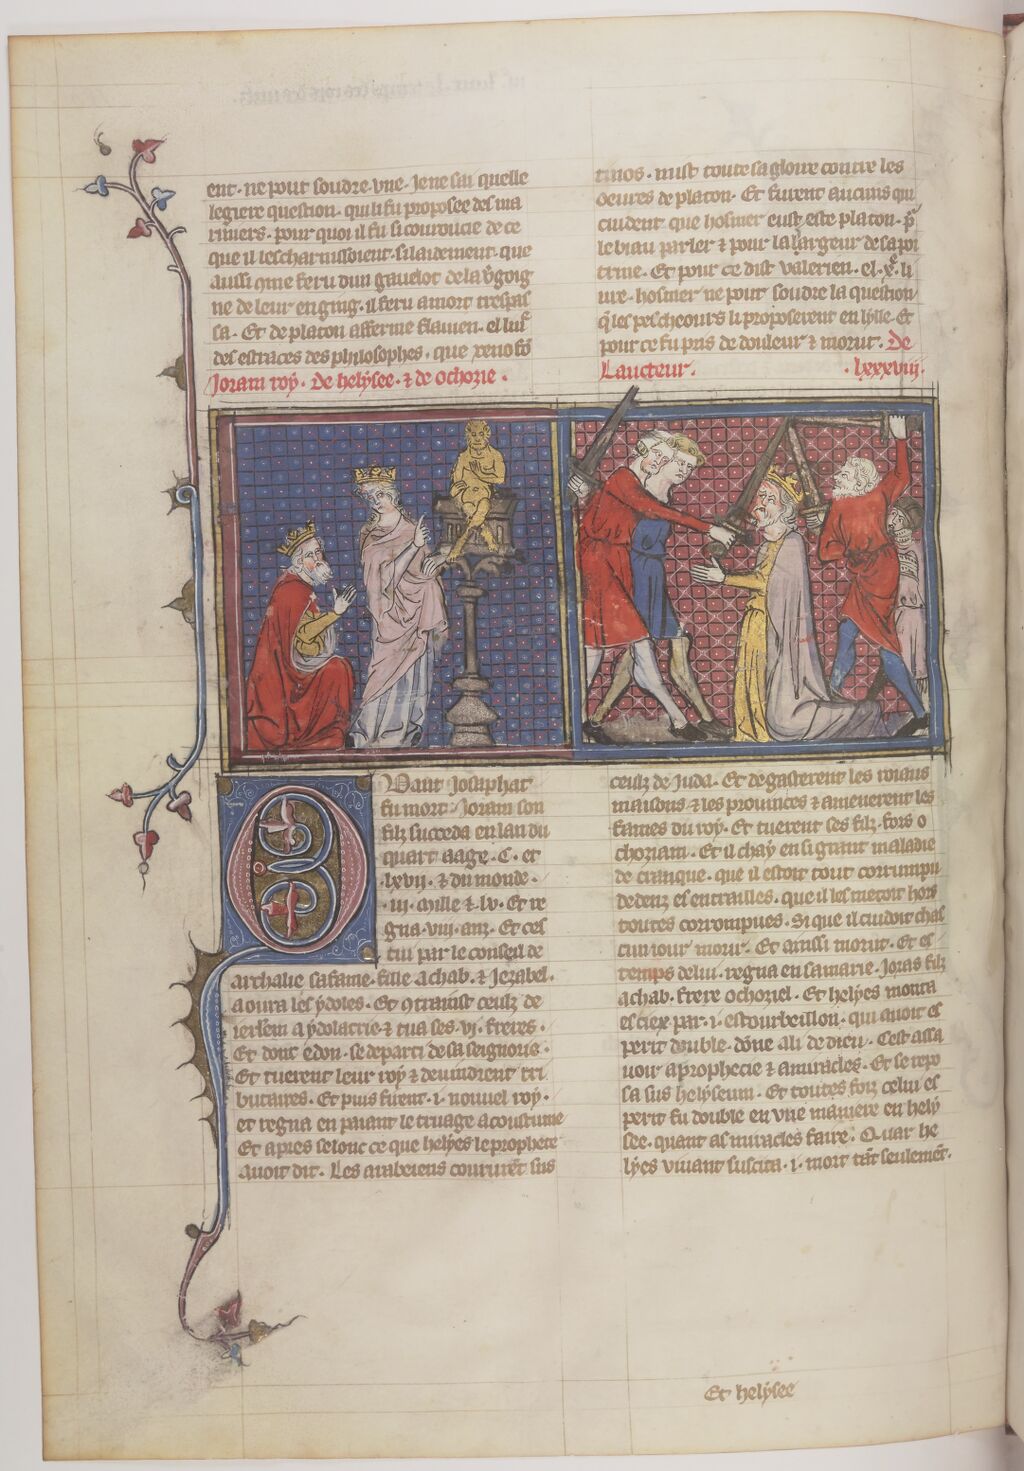 ent. ne pout soudre vne. Ie ne sai quelle
legiere question. qui li fu proposee des ma
riniers. pour quoi il fu si couroucie de ce
que il lescharnissoient. si laidement. que
aussi gme feru dun gauelot de la v̾goig
ne de leur enging. il feru a mort trespas
sa. Et de platon afferme flauien. el liu͛
des estraces des philosophes. que xenofō
Joram roy. De helysee. ⁊ de Ochozie.
tinos. mist toute sa gloire contre les
oeures de platon. Et furent aucuns qui
cuident que homer eust este platon. p̄
le biau parler ⁊ pour la largeur de sa poi
trine. Et pour ce dist valerien. el .x͛. li
ure. homer ne pout soudre la question
q̄ les pescheours li proposerent en lysle. Et
pour ce fu pris de douleur ⁊ morut. De
Laucteur. .lxxxviij.
Quant Josaphat
fu mort. Joram son
filz succeda en lan du
quart aage. C. et
lxvij. ⁊ du monde.
.iij. mille ⁊ lv. Et re
gna .viij. anz. Et ces
tui par le conseil de
athalie sa fame. fille achab. ⁊ Jezabel.
aoura les ydoles. Et 9trainst ceulz de
ierlem a ydolatrie ⁊ tua ses .vj. freres.
Et donc edon. se departi de sa seignorie.
Et tuerent leur roy ⁊ deuindrent tri
butaires. Et puis firent .i. nouuel roy.
et regna en paiant le truage acoustume
Et apres selonc ce que helyes le prophete
auoit dit. Les arabeiens coururēt sus
ceulz de Juda. Et degasterent les roiaus
maisons ⁊ les prouinces ⁊ amenerent les
fames du roy. Et tuerent ses filz. fors o
choziam. Et il chay en si grant maladie
de cranque. que il estoit tout corrumpu
dedenz es entrailles. que il les metoit hors
toutes corrompues. Si que il cuidoit chas
cun iour morir. Et ainssi morut. Et es
temps de lui. regna en samarie. Joras filz
achab. frere ochoziel. Et helyes monta
es ciex par .i. estourbeillon. qui auoit es
perit double. dōne a li de dieu. Cest assa
uoir a prophecie ⁊ a miracles. Et se repo
sa sus helyseum. Et toutes foiz celui es
perit fu double en vne maniere en hely
see. quant as miracles faire. Quar he
lyes viuant suscita .i. mort tāt seulemēt.
Et helysee